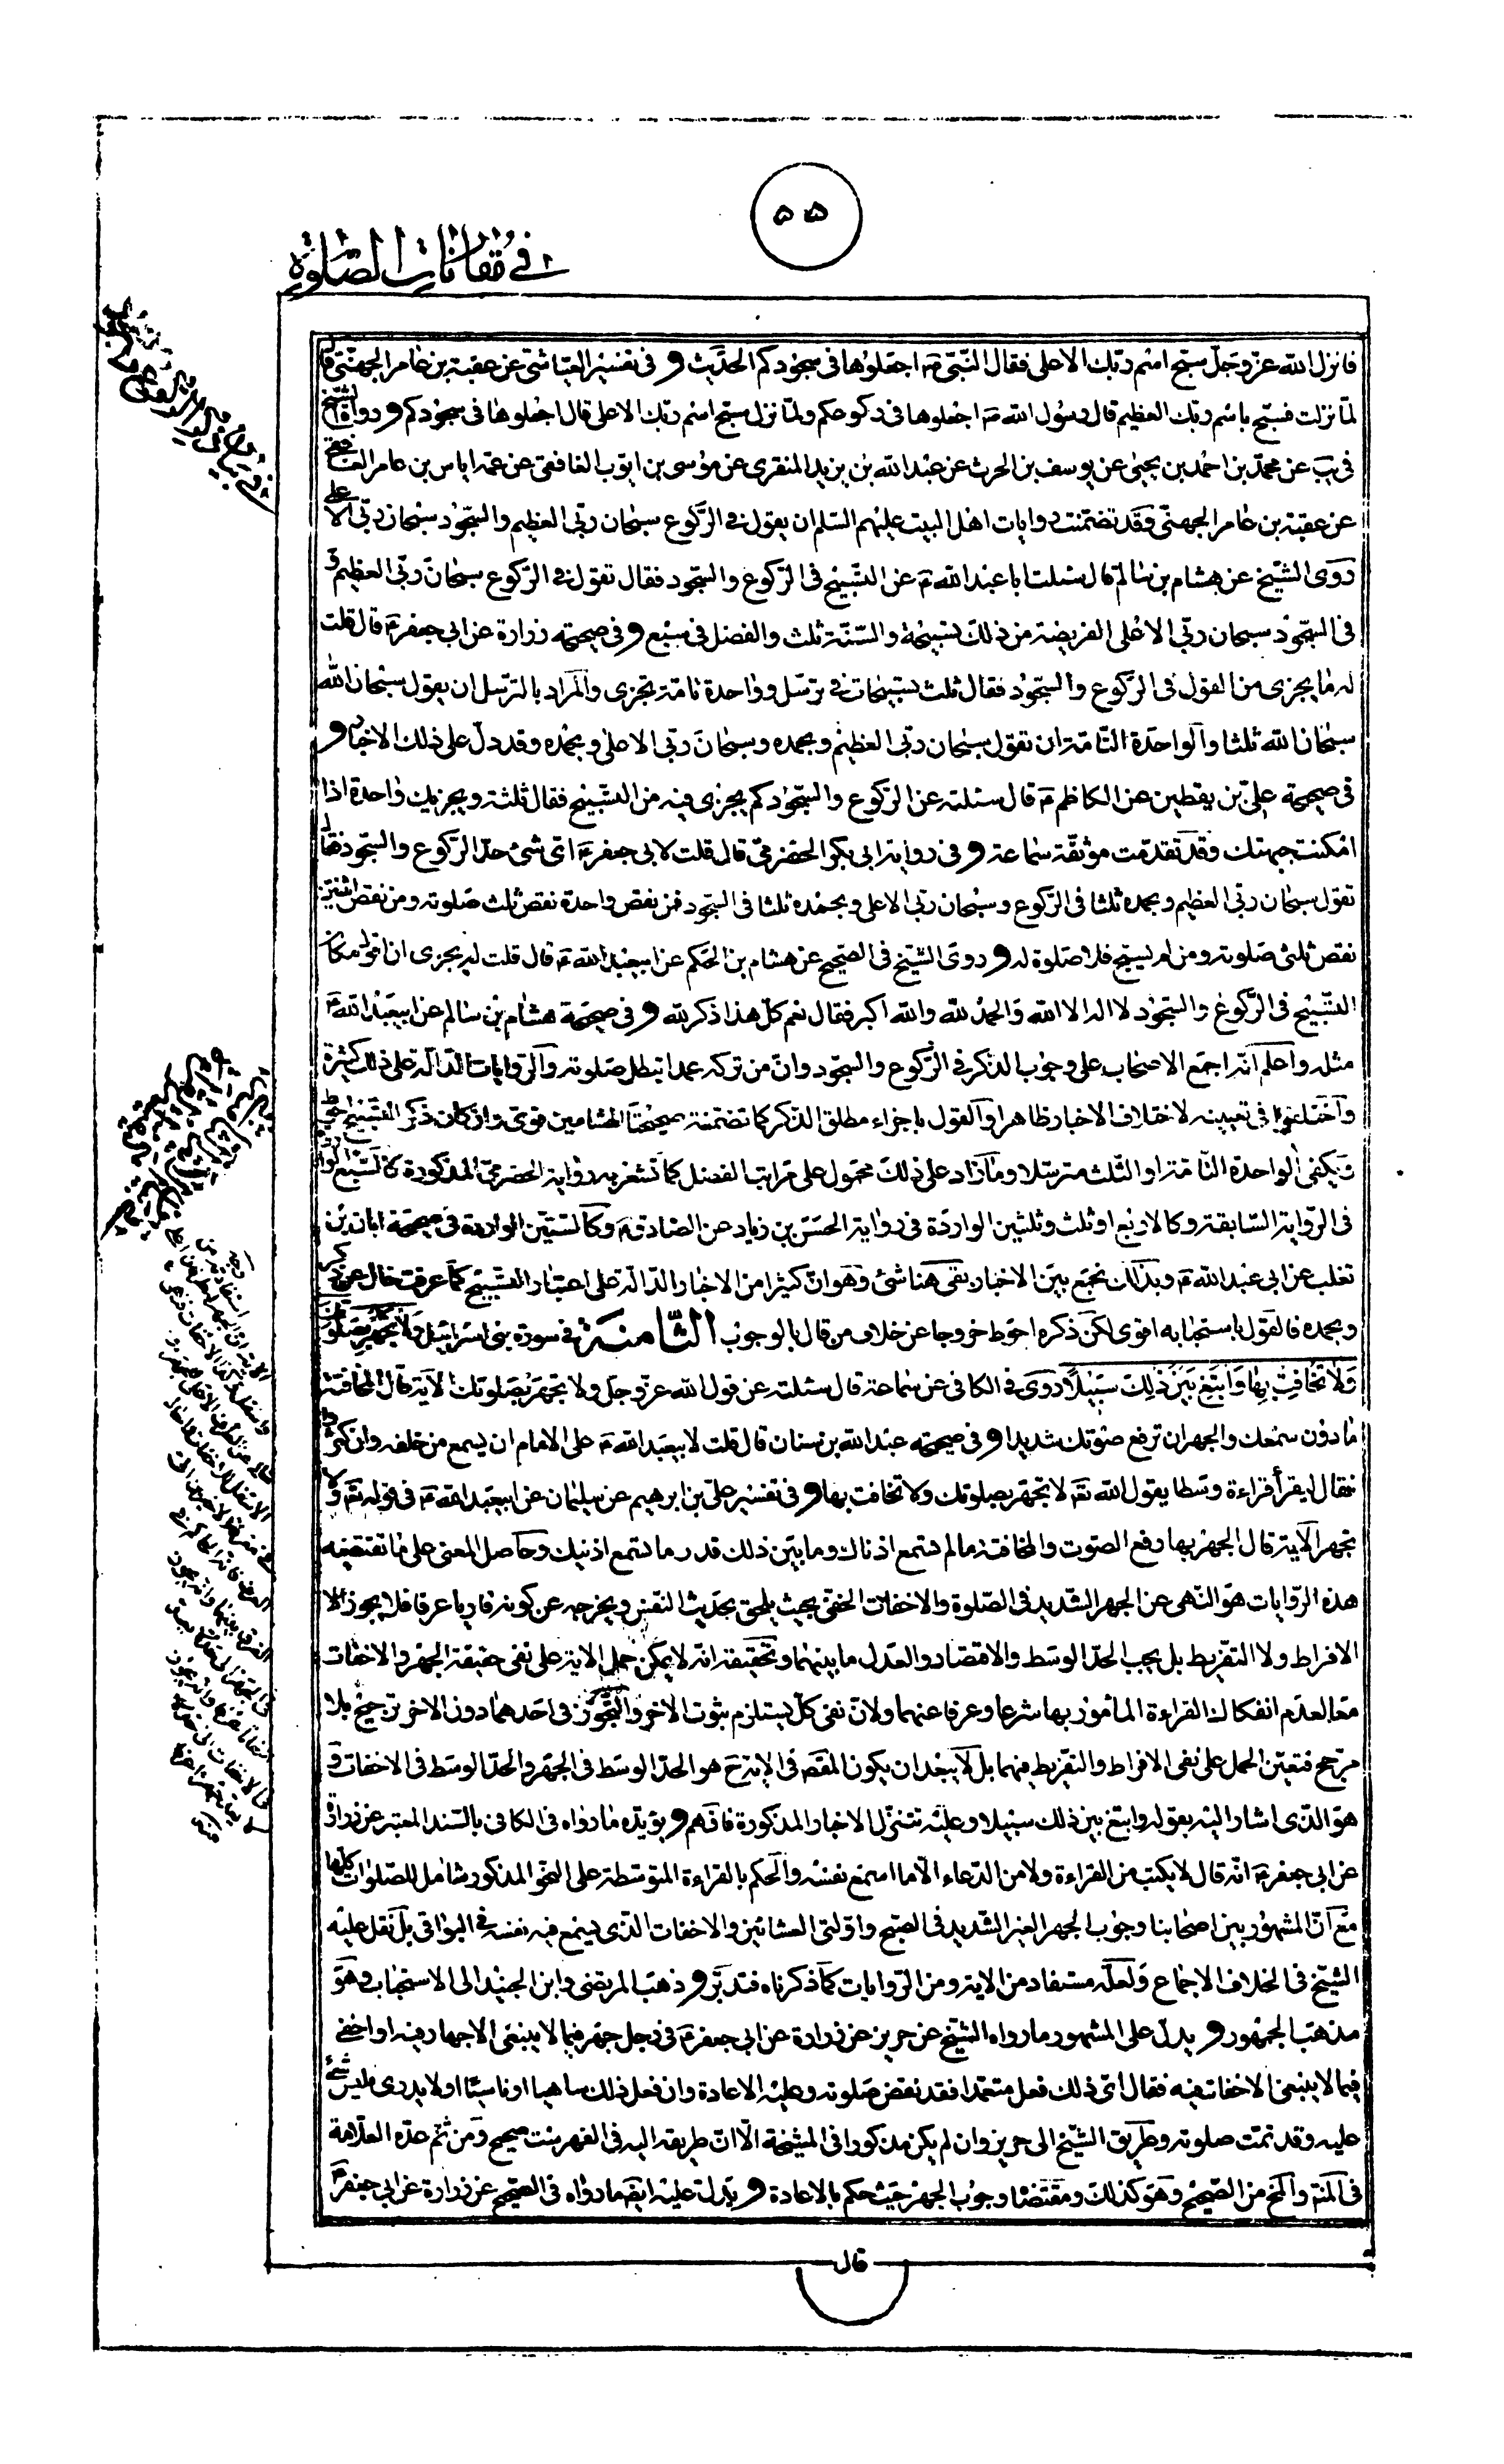 ۵۵
في مقارنات الصلوة
فانزل الله عز وجل سبح اسم ربك الاعلى فقال النبي ص اجعلوها في سجودكم الحديث و في تفسير العياشي عن عقبة بن عامر الجهني قال
لما نزلت فسبح باسم ربك العظيم قال رسول الله ص اجعلوها في ركوعكم ولما نزل سبح اسم ربك الاعلى قال اجعلوها في سجودكم و رواه الشيخ
في يب عن محمد بن احمد بن يحيى عن يوسف بن الحرث عن عبد الله بن يزيد المنقري عن موسى بن ايوب الغافقي عن عمه اياس بن عامر الغافقي
عن عقبة بن عامر الجهني وقد تضمنت روايات اهل البيت عليهم السلم ان يقول في الركوع سبحان ربي العظيم والسجود سبحان ربي الاعلى
روى الشيخ عن هشام بن سالم قال سئلت ابا عبد الله ع عن التسبيح في الركوع والسجود فقال تقول في الركوع سبحان ربي العظيم و
في السجود سبحان ربي الاعلى الفريضة من ذلك تسبيحة والسنة ثلث والفضل في سبع و في صحيحة زرارة عن ابي جعفر ع قال قلت
له ما يجزي من القول في الركوع والسجود فقال ثلث تسبيحات في ترسل وواحدة تامة تجزي والمراد بالترسل ان يقول سبحان الله
سبحان الله ثلثا والواحدة التامة ان تقول سبحان ربي العظيم وبحمده وسبحان ربي الاعلى وبحمده وقد دل على ذلك الاخبار و
في صحيحة علي بن يقطين عن الكاظم ع قال سئلته عن الركوع والسجود كم يجزي فيه من التسبيح فقال ثلثة ويجزيك واحدة اذا
امكنت جبهتك وقد تقدمت موثقة سماعة و في رواية ابي بكر الحضرمي قال قلت لابي جعفر ع اي شئ حد الركوع والسجود فقال
تقول سبحان ربي العظيم وبحمده ثلثا في الركوع وسبحان ربي الاعلى وبحمده ثلثا في السجود فمن نقص واحدة نقص ثلث صلوته ومن نقص اثنتين
نقص ثلثى صلوته ومن لم يسبح فلا صلوة له و روى الشيخ في الصحيح عن هشام بن الحكم عن ابيعبد الله ع قال قلت له يجزي ان اقول مكان
التسبيح في الركوع والسجود لا اله الا الله والحمد لله والله اكبر فقال نعم كل هذا ذكر لله و في صحيحة هشام بن سالم عن ابيعبد الله ع
مثله واعلم انه اجمع الاصحاب على وجوب الذكر في الركوع والسجود وان من تركه عمدا تبطل صلوته والروايات الدالة على ذلك كثيرة
واختلفوا في تعيينه لاختلاف الاخبار ظاهرا والقول باجزاء مطلق الذكر كما تضمنة صحيحتا الهشامين قوي وان كان ذكر التسبيح احوط
ويكفى الواحدة التامة او الثلث مترسلا وما زاد على ذلك محمول على مراتب الفضل كما تشعر به رواية الحضرمي المذكورة كالتسبع الواردة
في الرواية السابقة وكالاربع او ثلث وثلثين الواردة في رواية الحسن بن زياد عن الصادق ع وكالستين الواردة في صحيحة ابان بن
تغلب عن ابي عبد الله ع وبذلك نجمع بين الاخبار بقى هنا شئ وهو ان كثيرا من الاخبار الدالة على اعتبار التسبيح كما عرفت خال عن ذكر
وبحمده فالقول باستحبابه اقوى لكن ذكره احوط خروجا عن خلاف من قال بالوجوب الثامنة في سورة بني اسرائيل ولا تجهر بصلوتك
ولا تخافت بها وابتغ بين ذلك سبيلا روى في الكافي عن سماعة قال سئلته عن قول الله عز وجل ولا تجهر بصلوتك الاية قال المخافتة
ما دون سمعك والجهر ان ترفع صوتك شديدا و في صحيحة عبد الله بن سنان قال قلت لابيعبد الله ع على الامام ان يسمع من خلفه وان كثروا
فقال ليقرأ قراءة وسطا يقول الله تعالى لا تجهر بصلوتك ولا تخافت بها و في تفسير علي بن ابرهيم عن سليمان عن ابيعبد الله ع في قوله تع ولا
تجهر الاية قال الجهر بها رفع الصوت والمخافتة ما لم تسمع اذناك وما بين ذلك قدر ما تسمع اذنيك وحاصل المعنى على ما تقتضيه
هذه الروايات هو النهى عن الجهر الشديد في الصلوة والاخفات الخفي بحيث يلحق بحديث النفس ويخرجه عن كونه قاريا عرفا فلا يجوز لا
الافراط ولا التفريط بل يجب الحد الوسط والاقتصاد والعدل ما بينهما وتحقيقه انه لا يمكن حمل الاية على نفى حقيقة الجهر والاخفات
معا لعدم انفكاك القراءة المامور بها شرعا وعرفا عنهما ولان نفى كل يستلزم ثبوت الاخر والتجوز في احدهما دون الاخر ترجيح بلا
مرجح فتعين الحمل على نفى الافراط والتفريط فيهما بل لا يبعد ان يكون المقصود في الاية ح هو الحد الوسط في الجهر والحد الوسط في الاخفات و
هو الذي اشار اليه بقوله وابتغ بين ذلك سبيلا وعليه تتنزل الاخبار المذكورة فافهم و يؤيده ما رواه في الكافي بالسند المعتبر عن زرارة
عن ابي جعفر ع انه قال لا يكتب من القراءة ولا من الدعاء الا ما اسمع نفسه والحكم بالقراءة المتوسطة على النحو المذكور شامل للصلوات كلها
مع ان المشهور بين اصحابنا وجوب الجهر الغير الشديد في الصبح واولتي العشائين والاخفات الذي يسمع فيه نفسه في البواقي بل نقل عليه
الشيخ في الخلاف الاجماع ولعله مستفاد من الاية ومن الروايات كما ذكرناه فتدبر و ذهب المرتضى وابن الجنيد الى الاستحباب وهو
مذهب الجمهور و يدل على المشهور ما رواه الشيخ عن حريز عن زرارة عن ابي جعفر ع في رجل جهر فيما لا ينبغي الاجهار فيه او اخفى
فيما لا ينبغي الاخفات فيه فقال اي ذلك فعل متعمدا فقد نقض صلوته وعليه الاعادة وان فعل ذلك ساهيا او ناسيا او لا يدري فليس شئ
عليه وقد تمت صلوته وطريق الشيخ الى حريز وان لم يكن مذكورا في المشيخة الا ان طريقه اليه في الفهرست صحيح ومن ثم عده العلامة
في المنتهى والمخ من الصحيح وهو كذلك ومقتضا وجوب الجهر حيث حكم بالاعادة و يدل عليه ايضا ما رواه في الصحيح عن زرارة عن ابي جعفر ع
قال